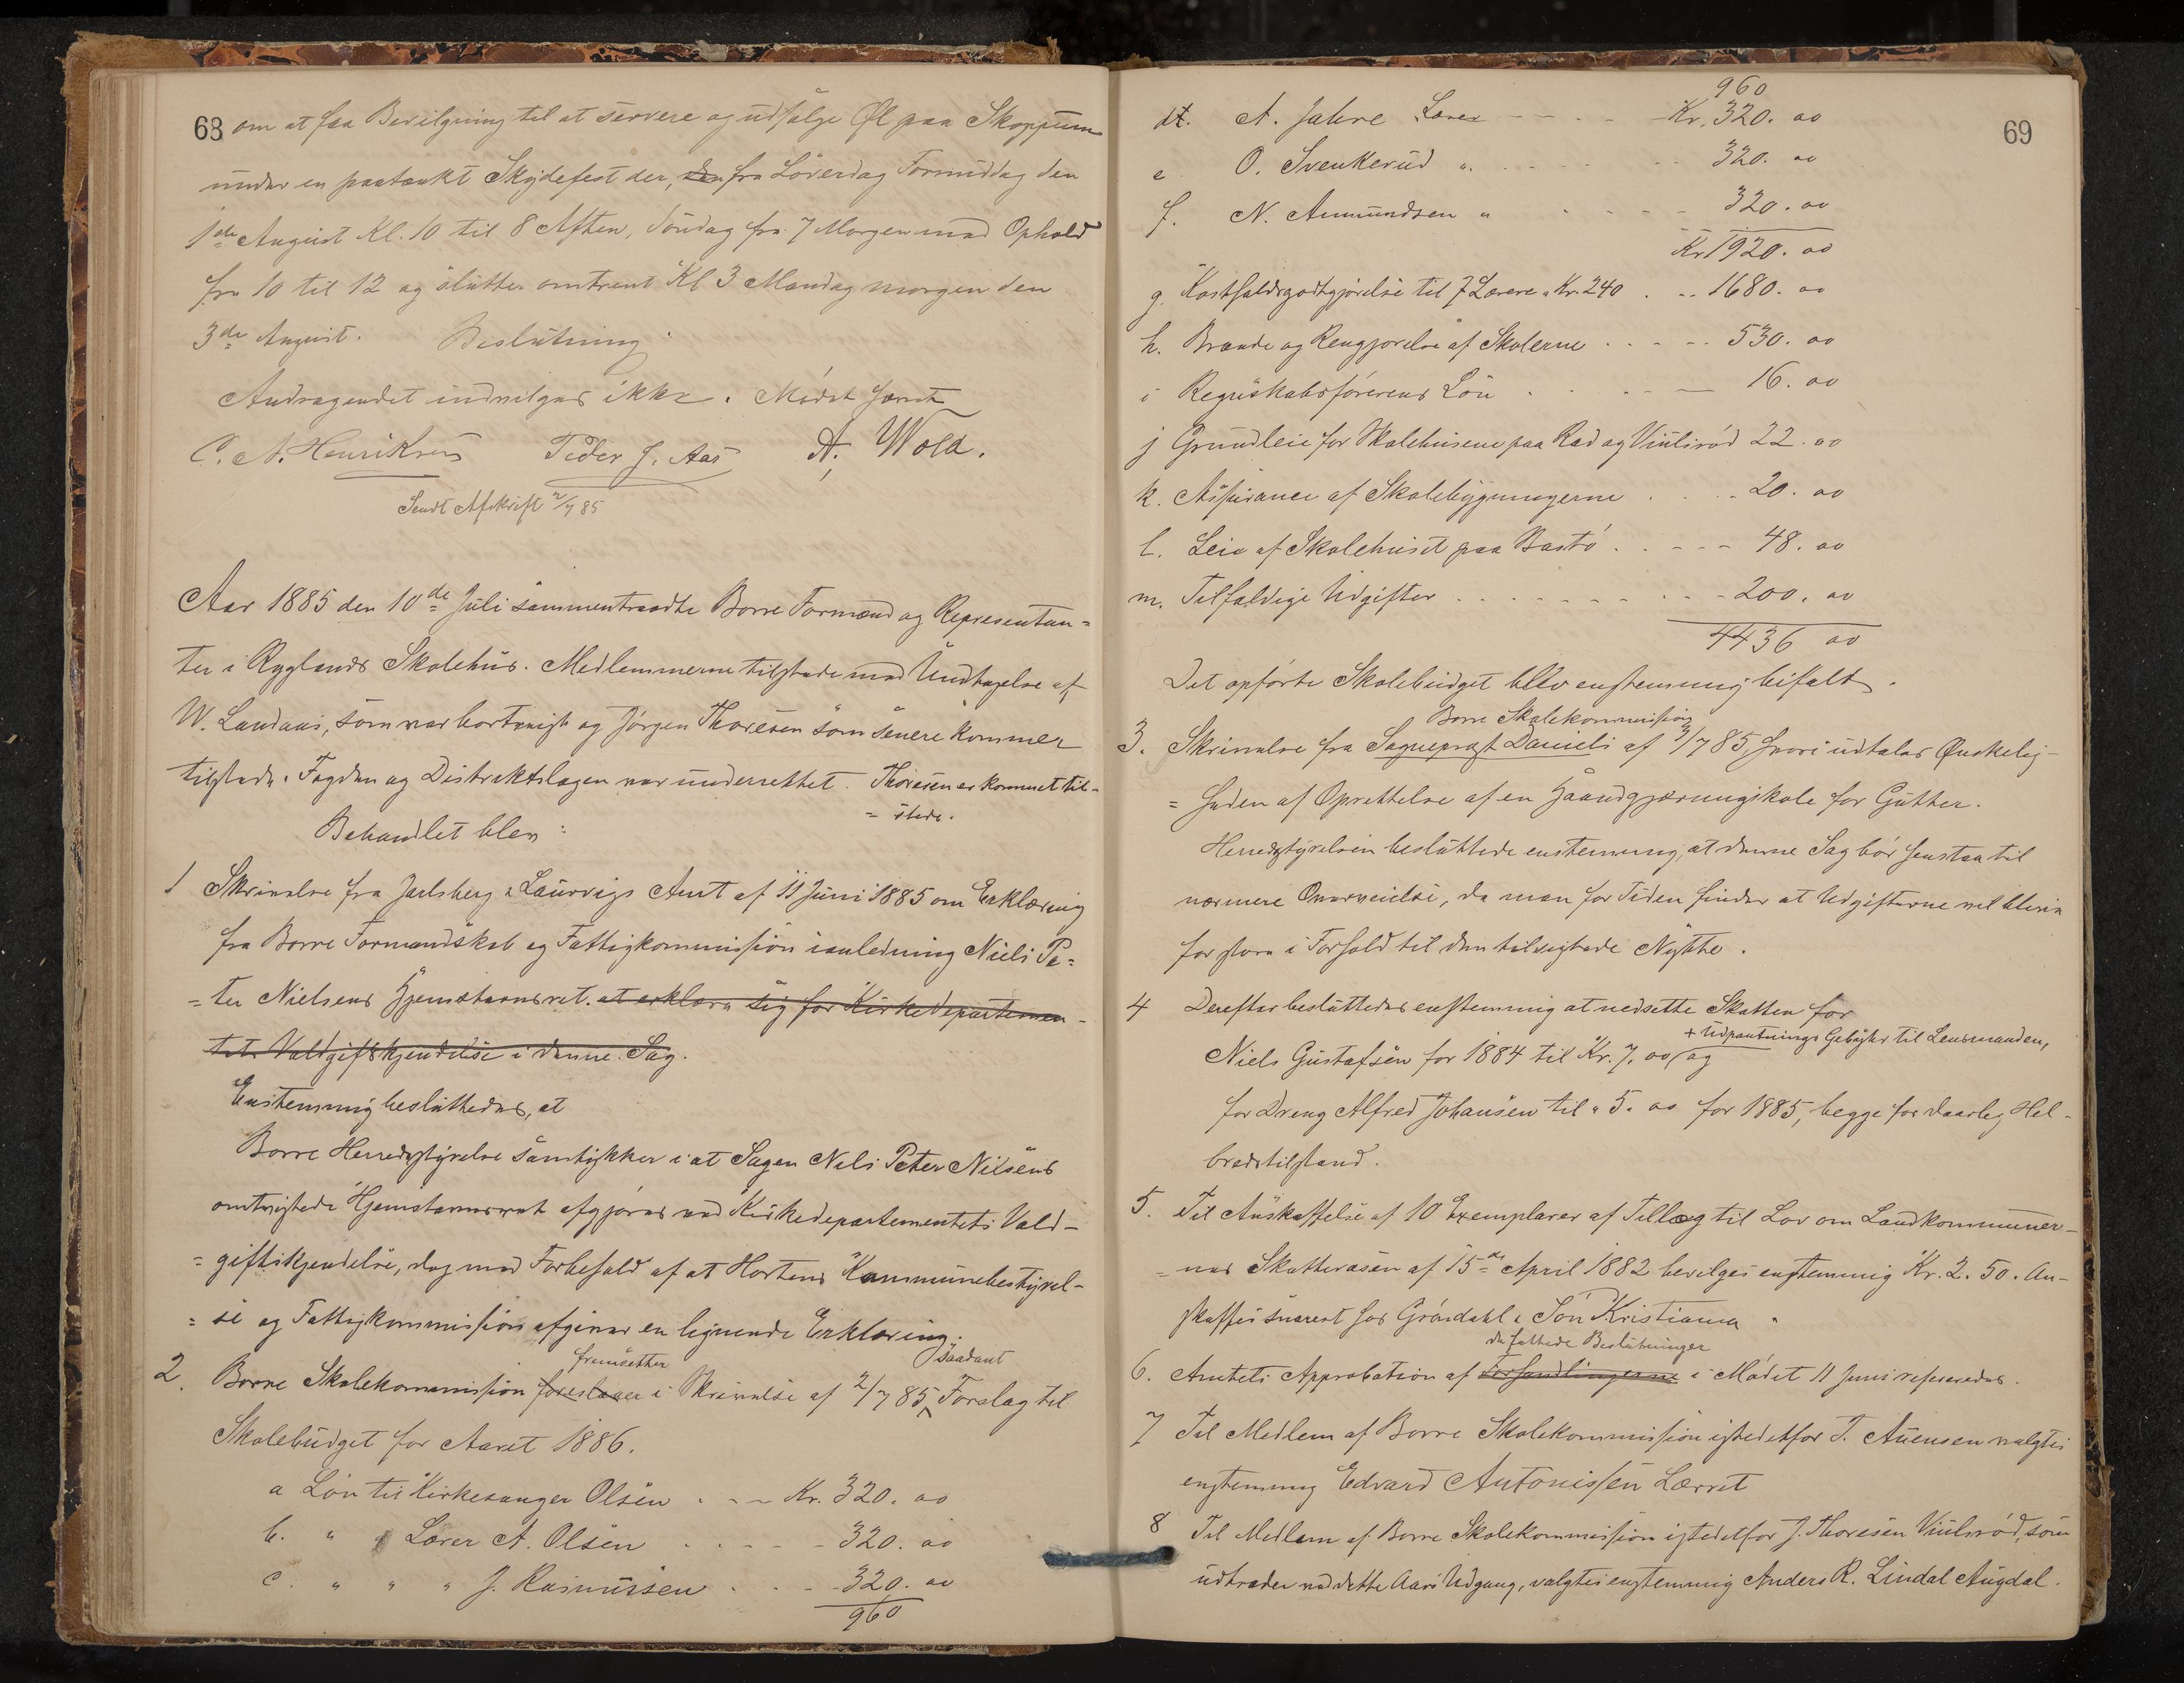 68 om at faa Bevilgning til at servere og udsælge Øl paa Skoppum
under en paatænkt Skydefest der, den fra Löverdag Formiddag den
1ste August Kl. 10 til 8 Aften, Söndag fra 7 Morgen med Ophold
fra 10 til 12 og slutter omtrent Kl 3 Mandag morgen den
3de August. Beslutning:
Andragendet indvilges ikke. Mödet hævet
C. A. Henriksen Peder J. Aas A. Wold.
Sendt Afskrift 2/7 85
Aar 1885 den 10de Juli sammentraadte Borre Formænd og Representan=
ter i Ryglands Skolehus. Medlemmerne tilstede med Undtagelse af
W. Landaas, som var bortreist og Jörgen Thoresen som senere kommer
tilstede. Fogden og Distriktslægen var underrettet. Thoresen er kommet til=
= stede.
Behandlet blev:
1 Skrivelse fra Jarlsberg & Laurvigs Amt af 11 Juni 1885 om Erklæring
fra Borre Formandskab og Fattigkommission ianledning Niels Pe=
= ter Nielsens Hjemstavnsret. at erklære sig for Kirkedepartemen-
tets Voldgiftskjendelse i denne Sag.
Enstemmig besluttedes, at
Borre Herredsstyrelse samtykker i at Sagen Nils Peter Nilsens
omtvistede Hjemstavnsret afgjöres ved Kirkedepartementets Vold-
= giftskjendelse, dog med Forbehold af at Hortens Kommunebestyrel-
= se og Fattigkommission afgiver en lignende Erklæring.
fremsætter saadant
2. Borre Skolekommission foreslaaer i Skrivelse af 2/7 85, Forslag til
Skolebudget for Aaret 1886.
a Lön til Kirkesanger Olsen . - - Kr. 320. 00
b. " " Lærer A. Olsen . . - - - 320. 00
c. " " " J. Rasmussen . . - - 320. 00
960
69
960
d. A. Jahre Lærer - - - - Kr. 320. 00
e O. Svenkerud " . - - - - 320. 00
f. N. Amundsen " - - - - 320. 00
Kr 1920. 00
g. Kostholdsgodtgjörelse til 7 Lærere a Kr. 240 . - - 1680. 00
h. Brænde og Rengjörelse af Skolerne . - - - 530. 00
i Regnskabsförerens Lön . - - - 16. 00
j Grundleie for Skolehusene paa Rød og Viulsröd 22. 00
k. Assurance af Skolebygningerne . . - 20. 00
l. Leie af Skolehuset paa Bastö . . - - - 48. 00
m. Tilfældige Udgifter . - - - - - - - 200. 00
4436 00
Det opförte Skolebudget blev enstemmig bifaldt.
Borre Skolekommission
3. Skrivelse fra Sogneprest Daniels af 2/7 85, hvori udtales Önskelig-
= heden af Oprettelse af en Haandgjerningskole for Gutter.
Herredsstyrelsen besluttede enstemmig, at denne Sag bör henstaa til
nærmere Overveielse, da man for Tiden finder at Udgifterne vil blive
for store i Forhold til den tilsigtede Nytte.
4 Derefter besluttedes enstemmig at nedsætte Skatten for
+ Udpantnings Gebyhr til Lensmanden,
Niels Gustafsen for 1884 til Kr. 7. 00, og
for Dreng Alfred Johansen til " 5. 00 for 1885, begge for daarlig Hel-
bredstilstand.
5. Til Anskaffelse af 10 Exemplarer af Tillæg til Lov om Landkommuner-
= nes Skattevæsen af 15de April 1882 bevilges enstemmig Kr. 2. 50. An-
skaffes snarest hos Gröndahl & Sön Kristiania.
de fattede Beslutninger
6. Amtets Approbation af Forhandlingerne i Mödet 11 Juni refereredes.
7 Til Medlem af Borre Skolekommission istedetfor T. Auensen valgtes
enstemmig Edvard Antonissen Lærret
8 Til Medlem af Borre Skolekommission istedetfor J. Thoresen Viulsröd, som
udtræder ved dette Aars Udgang, valgtes enstemmig Anders R. Lindal Augdal.